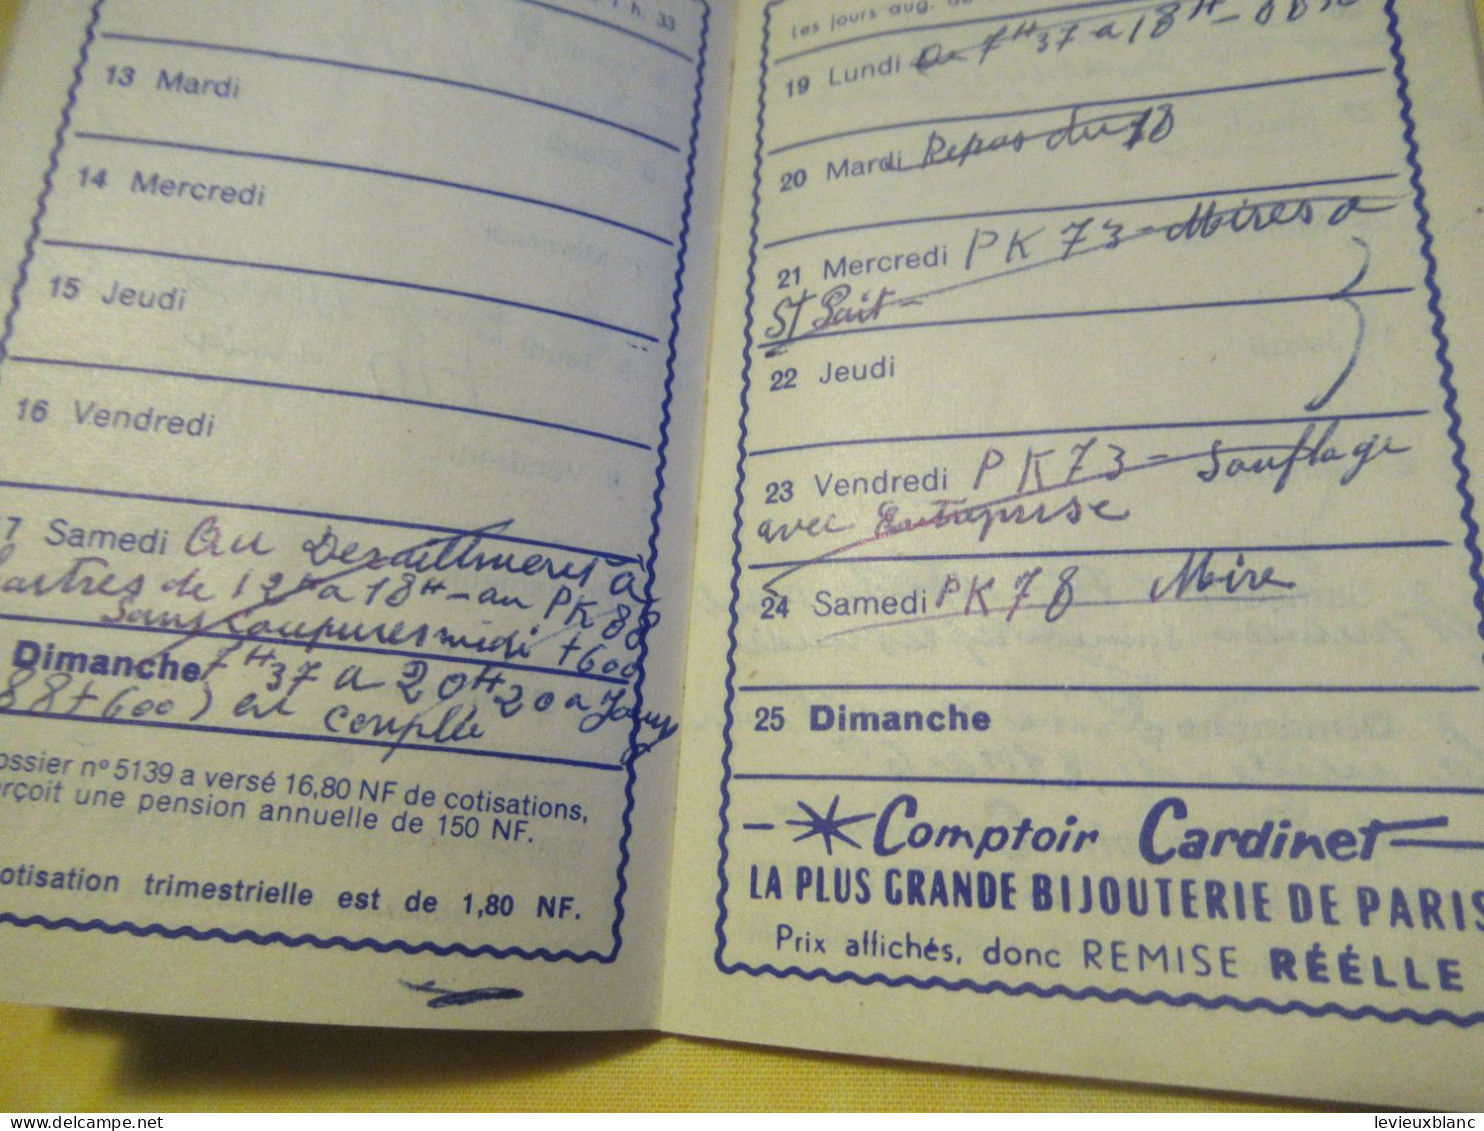 h. 33
13 Mardi
14 Mercredi
15 Jeudi
16 Vendredi
7 Samedi Au Deraillement à
artres de 12H a 18H - au PK 88
Sans coupures midi + 600
Dimanche 7H37 a 20H20 a
88 + 600) en
ossier nº 5139 a versé 16,80 NF de cotisations,
erçoit une pension annuelle de 150 NF.
otisation trimestrielle est de 1,80 NF.
Les jours aug. de
19 Lundi De 7H37 a 18H -
20 Mardi Repos du 18
21 Mercredi PK 73 - Mires a
St
22 Jeudi
23 Vendredi PK 73 = Souflage
avec Entreprise
24 Samedi PK 78 Mire
25 Dimanche
Comptoir Cardinet
LA PLUS GRANDE BIJOUTERIE DE PARIS
Prix affichés, donc REMISE RÉÉLLE
levieuxblanc